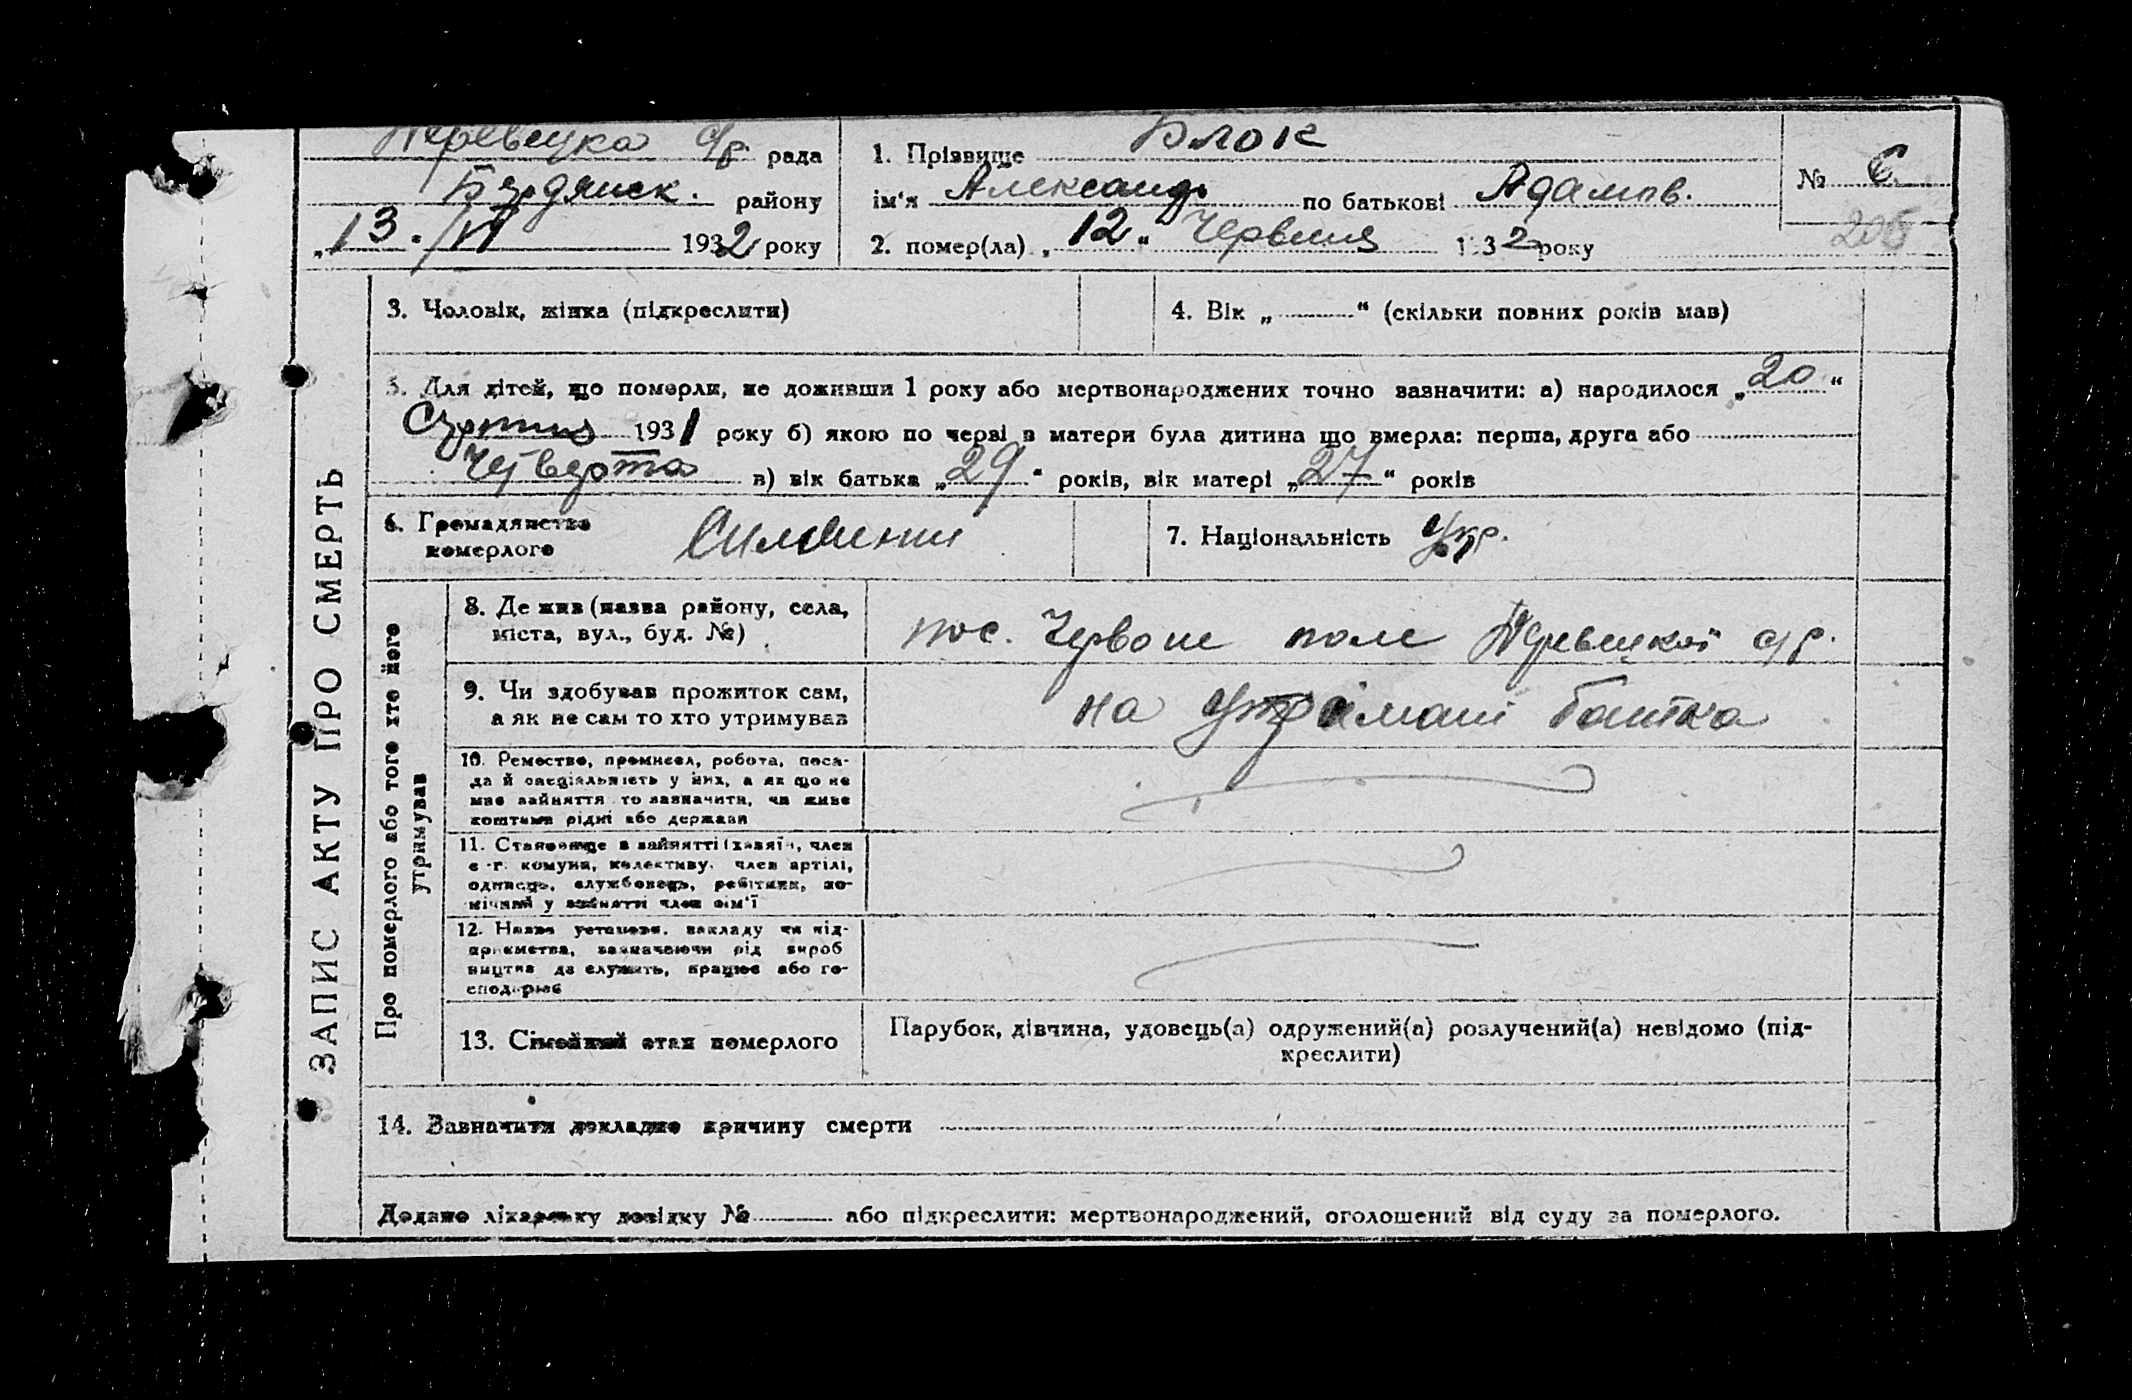 рада
Бердянск. району
„13." /VI 1932 року
1. Прізвище Блок
ім'я Александр по батькові Адамов.
2. помер(ла) „12" Червня 1932 року
№ 6
206
ЗАПИС АКТУ ПРО СМЕРТЬ
3. Чоловік, жінка (підкреслити)
4. Вік „ " (скільки повних років мав)
5. Для дітей, що померли, не доживши 1 року або мертвонароджених точно зазначити: а) народилося „20"
Серпня 1931 року б) якою по черві в матери була дитина що вмерла: перша, друга або
Четверта в) вік батька „29" років, вік матері „27" років
6. Громадянство
померлого
7. Національність Укр.
Про померлого або того хто його
утримував
8. Де жив (назва району, села,
міста, вул., буд. №)
пос. Червоне поле с/р.
9. Чи здобував прожиток сам,
а як не сам то хто утримував
на утримані батька
10. Ремество, промисел, робота, поса-
да й спеціяльність у них, а як що не
мав зайняття то зазначити, чи живе
коштами рідні або держави
11. Становище в зайнятті (хазяїн, член
с.-г. комуни, колективу, член артілі,
одинець, службовець, робітник, по-
мічний у зайнятті член сім'ї
12. Назва установи, закладу чи під-
приємства, зазначаючи рід вироб
ництва де служить, працює або го-
сподарює
13. Сімейний стан померлого
Парубок, дівчина, удовець(а) одружений(а) розлучений(а) невідомо (під-
креслити)
14. Зазначити докладно причину смерти
Додано лікарську довідку № або підкреслити: мертвонароджений, оголошений від суду за померлого.